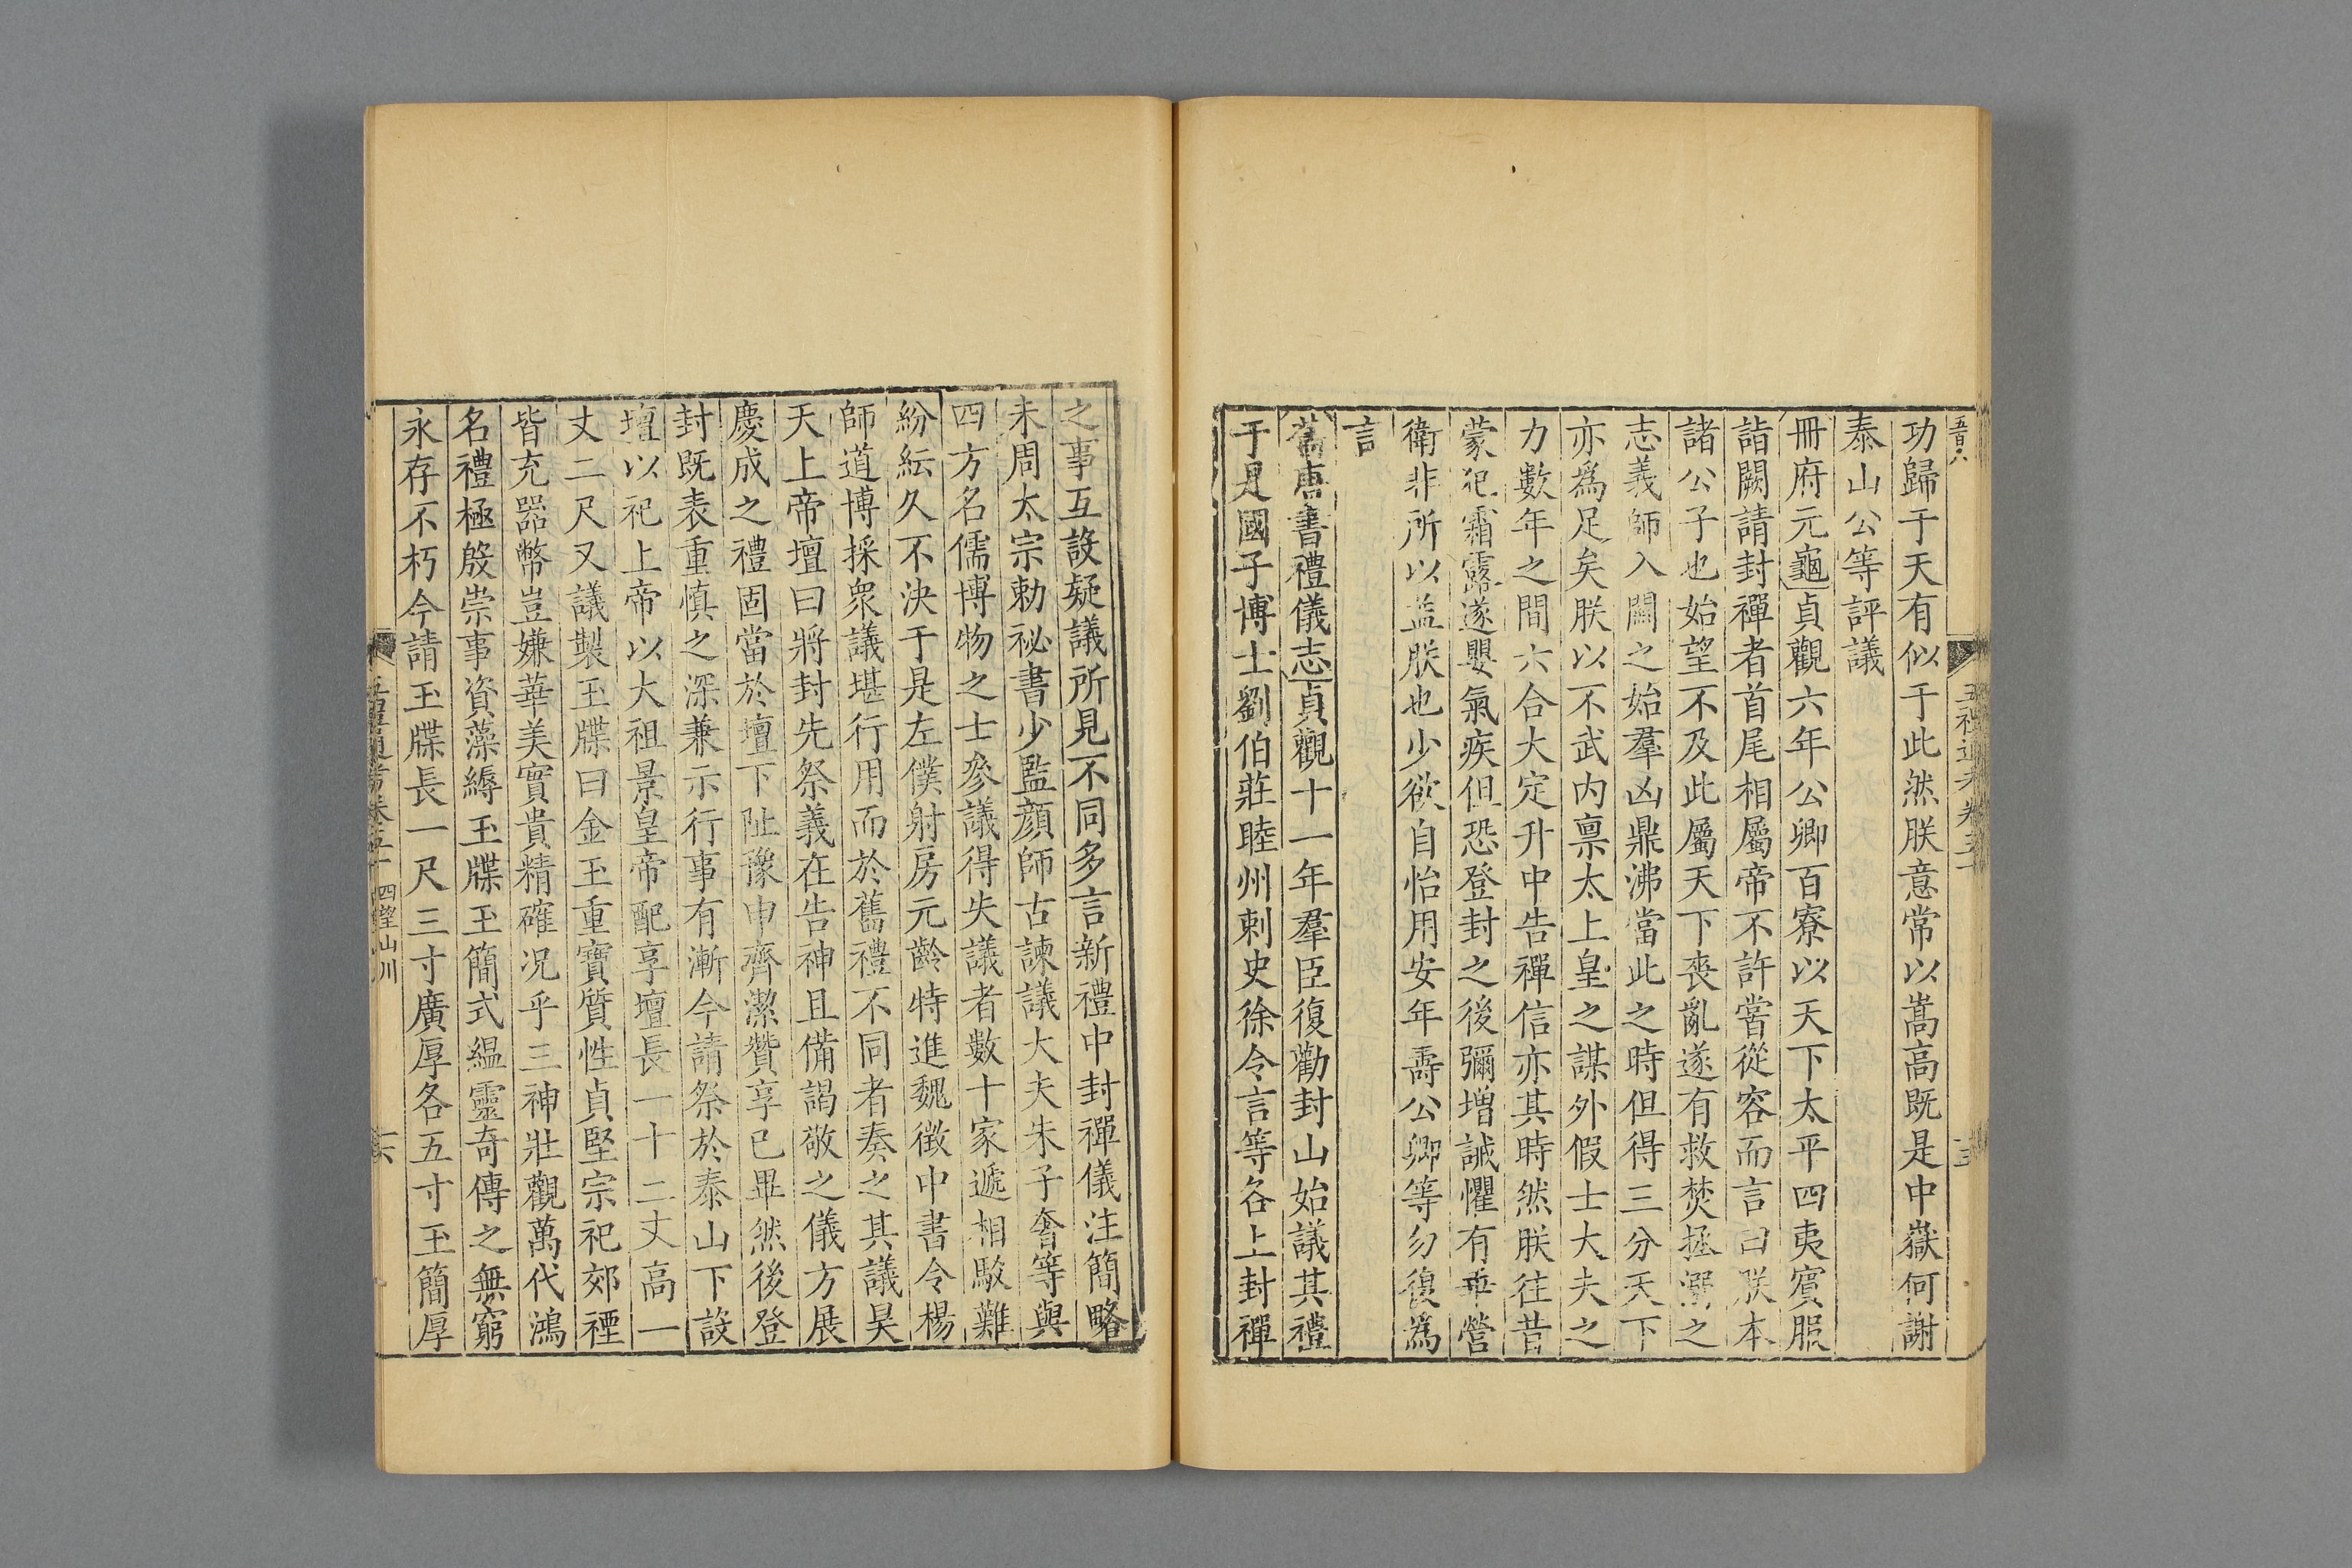 五百六
五禮通考卷五十
功歸于天有似于此然朕意常以嵩高既是中嶽何謝
泰山公等評議
冊府元龜貞觀六年公卿百寮以天下太平四夷賓服
詣闕請封禪者首尾相屬帝不許嘗從容而言曰朕本
諸公子也始望不及此屬天下喪亂遂有救焚拯溺之
志義師入關之始羣凶鼎沸當此之時但得三分天下
亦爲足矣朕以不武内禀太上皇之謀外假士大夫之
力數年之間六合大定升中告禪信亦其時然朕往昔
蒙犯霜露遂嬰氣疾但恐登封之後彌增誠懼有乖營
衛非所以益朕也少欲自怡用安年壽公卿等勿復爲
言
舊唐書禮儀志貞觀十一年羣臣復勸封山始議其禮
于是國子博士劉伯莊睦州刺史徐令言等各上封禪
之事互設疑議所見不同多言新禮中封禪儀注簡略
未周太宗勅祕書少監顔師古諫議大夫朱子奢等與
四方名儒博物之士參議得失議者數十家遞相駁難
紛紜久不決于是左僕射房元齡特進魏徵中書令楊
師道博採衆議堪行用而於舊禮不同者奏之其議昊
天上帝壇曰將封先祭義在告神且備謁敬之儀方展
慶成之禮固當於壇下阯豫申齊潔贊享已畢然後登
封既表重慎之深兼示行事有漸今請祭於泰山下設
壇以祀上帝以大祖景皇帝配享壇長一十二丈高一
丈二尺又議製玉牒曰金玉重寶質性貞堅宗祀郊禋
皆充器幣豈嫌華美實貴精確况乎三神壯觀萬代鴻
名禮極殷崇事資藻縟玉牒玉簡式緼靈奇傳之無窮
永存不朽今請玉牒長一尺三寸廣厚各五寸玉簡厚
五禮通考卷五十 四望山川